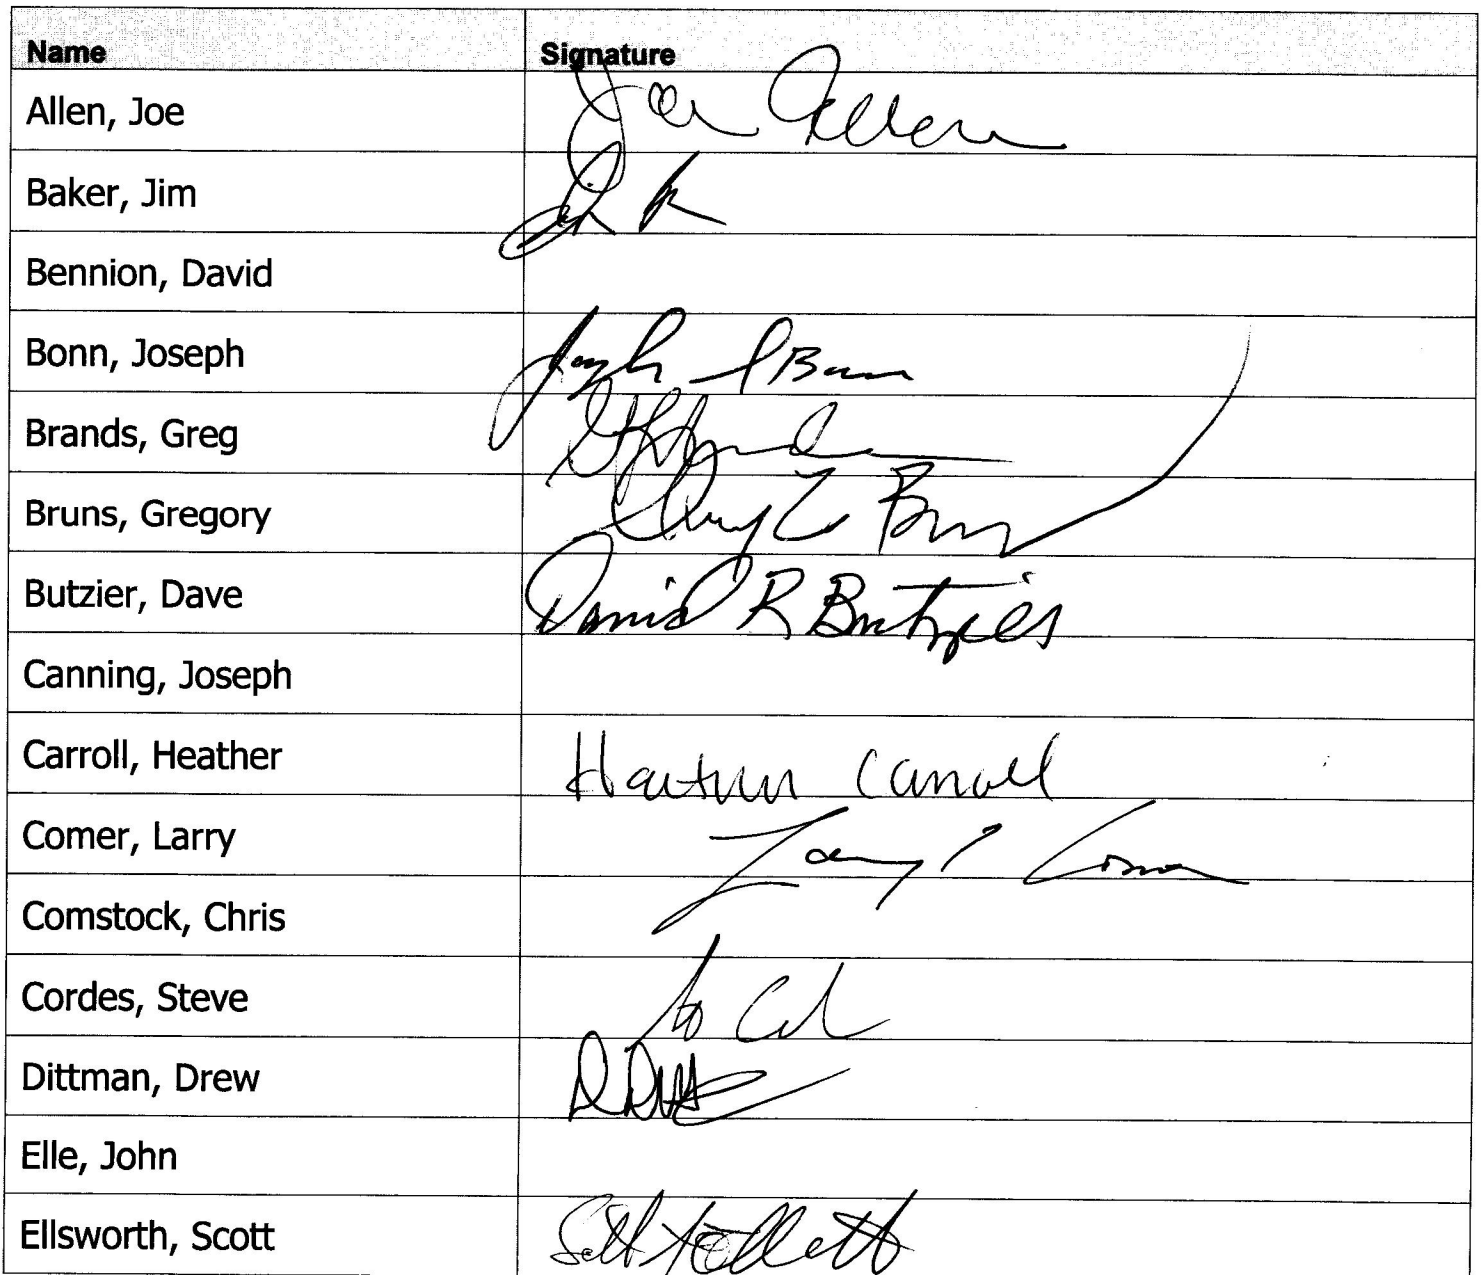 Name Signature
Allen, Joe Joe Allen
Baker, Jim
Bennion, David
Bonn, Joseph Joseph
Brands, Greg
Bruns, Gregory
Butzier, Dave David R Butzier
Canning, Joseph
Carroll, Heather Heather Carroll
Comer, Larry Larry Comer
Comstock, Chris
Cordes, Steve
Dittman, Drew
Elle, John
Ellsworth, Scott